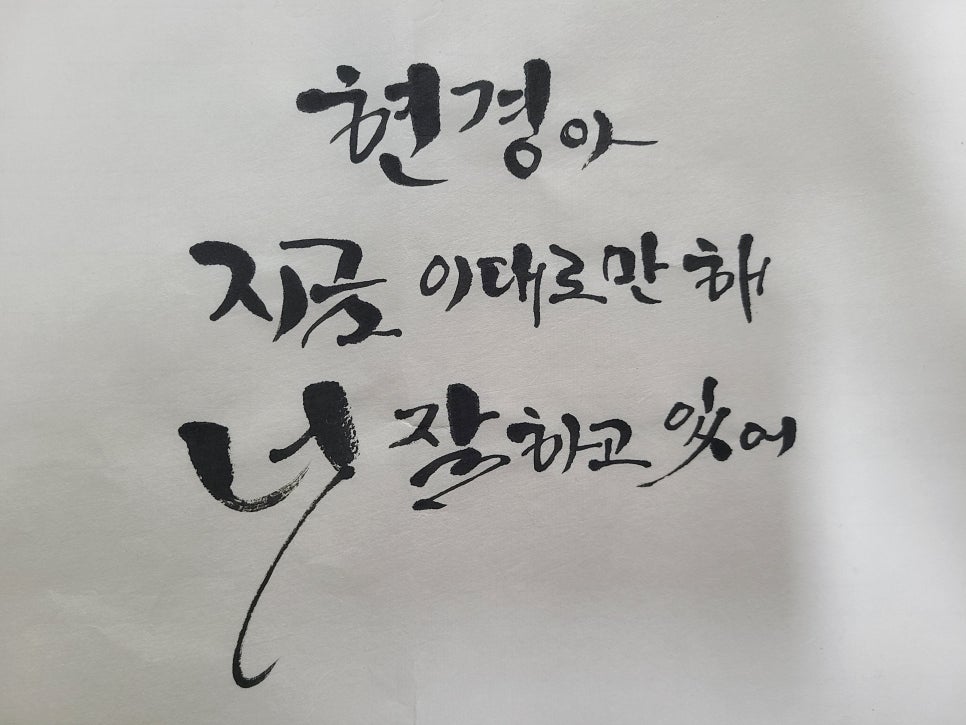 현경아
지금 이대로만 해
너 잘하고 있어